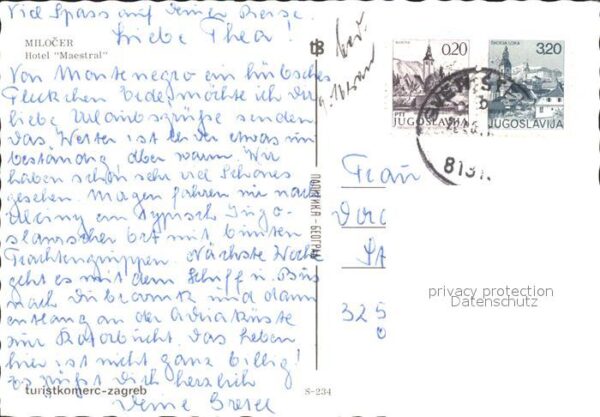 Viel Spass auf Deiner Reise.
Liebe Thea!
MILOČER
Hotel "Maestral"
Von Montenegro ein hübsches
Fleckchen Erde, möchte ich Dir
liebe Urlaubsgrüße senden
Das Wetter ist leider etwas un
beständig, aber warm. Wir
haben schon sehr viel Schönes
gesehen. Morgen fahren wir nach
Ulcinj ein typisch Jugo-
slawischer Ort mit bunten
Trachtengruppen. Nächste Woche
geht es mit dem Schiff u. Bus
nach Dubrovnik und dann
entlang an der Adriaküste
zur Kotorbucht. Das Leben
hier ist nicht ganz billig!
Es grüßt Dich herzlich
Deine Gretel
turistkomerc-zagreb
S-234
ПОЛИТИКА - БЕОГРАД
0,20
PTT
JUGOSLAVIJA
ŠKOFJA LOKA
3,20
JUGOSLAVIJA
8131
Frau
325
privacy protection
Datenschutz